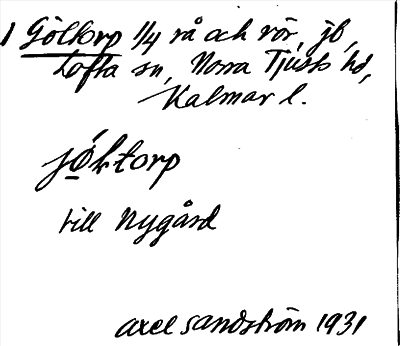 1 Göltorp 1/4 rå och rör, jb,
Lofta sn, Norra Tjusts hd,
Kalmar l.
jö̱ktorp
till Nygård
Axel Sandström 1931